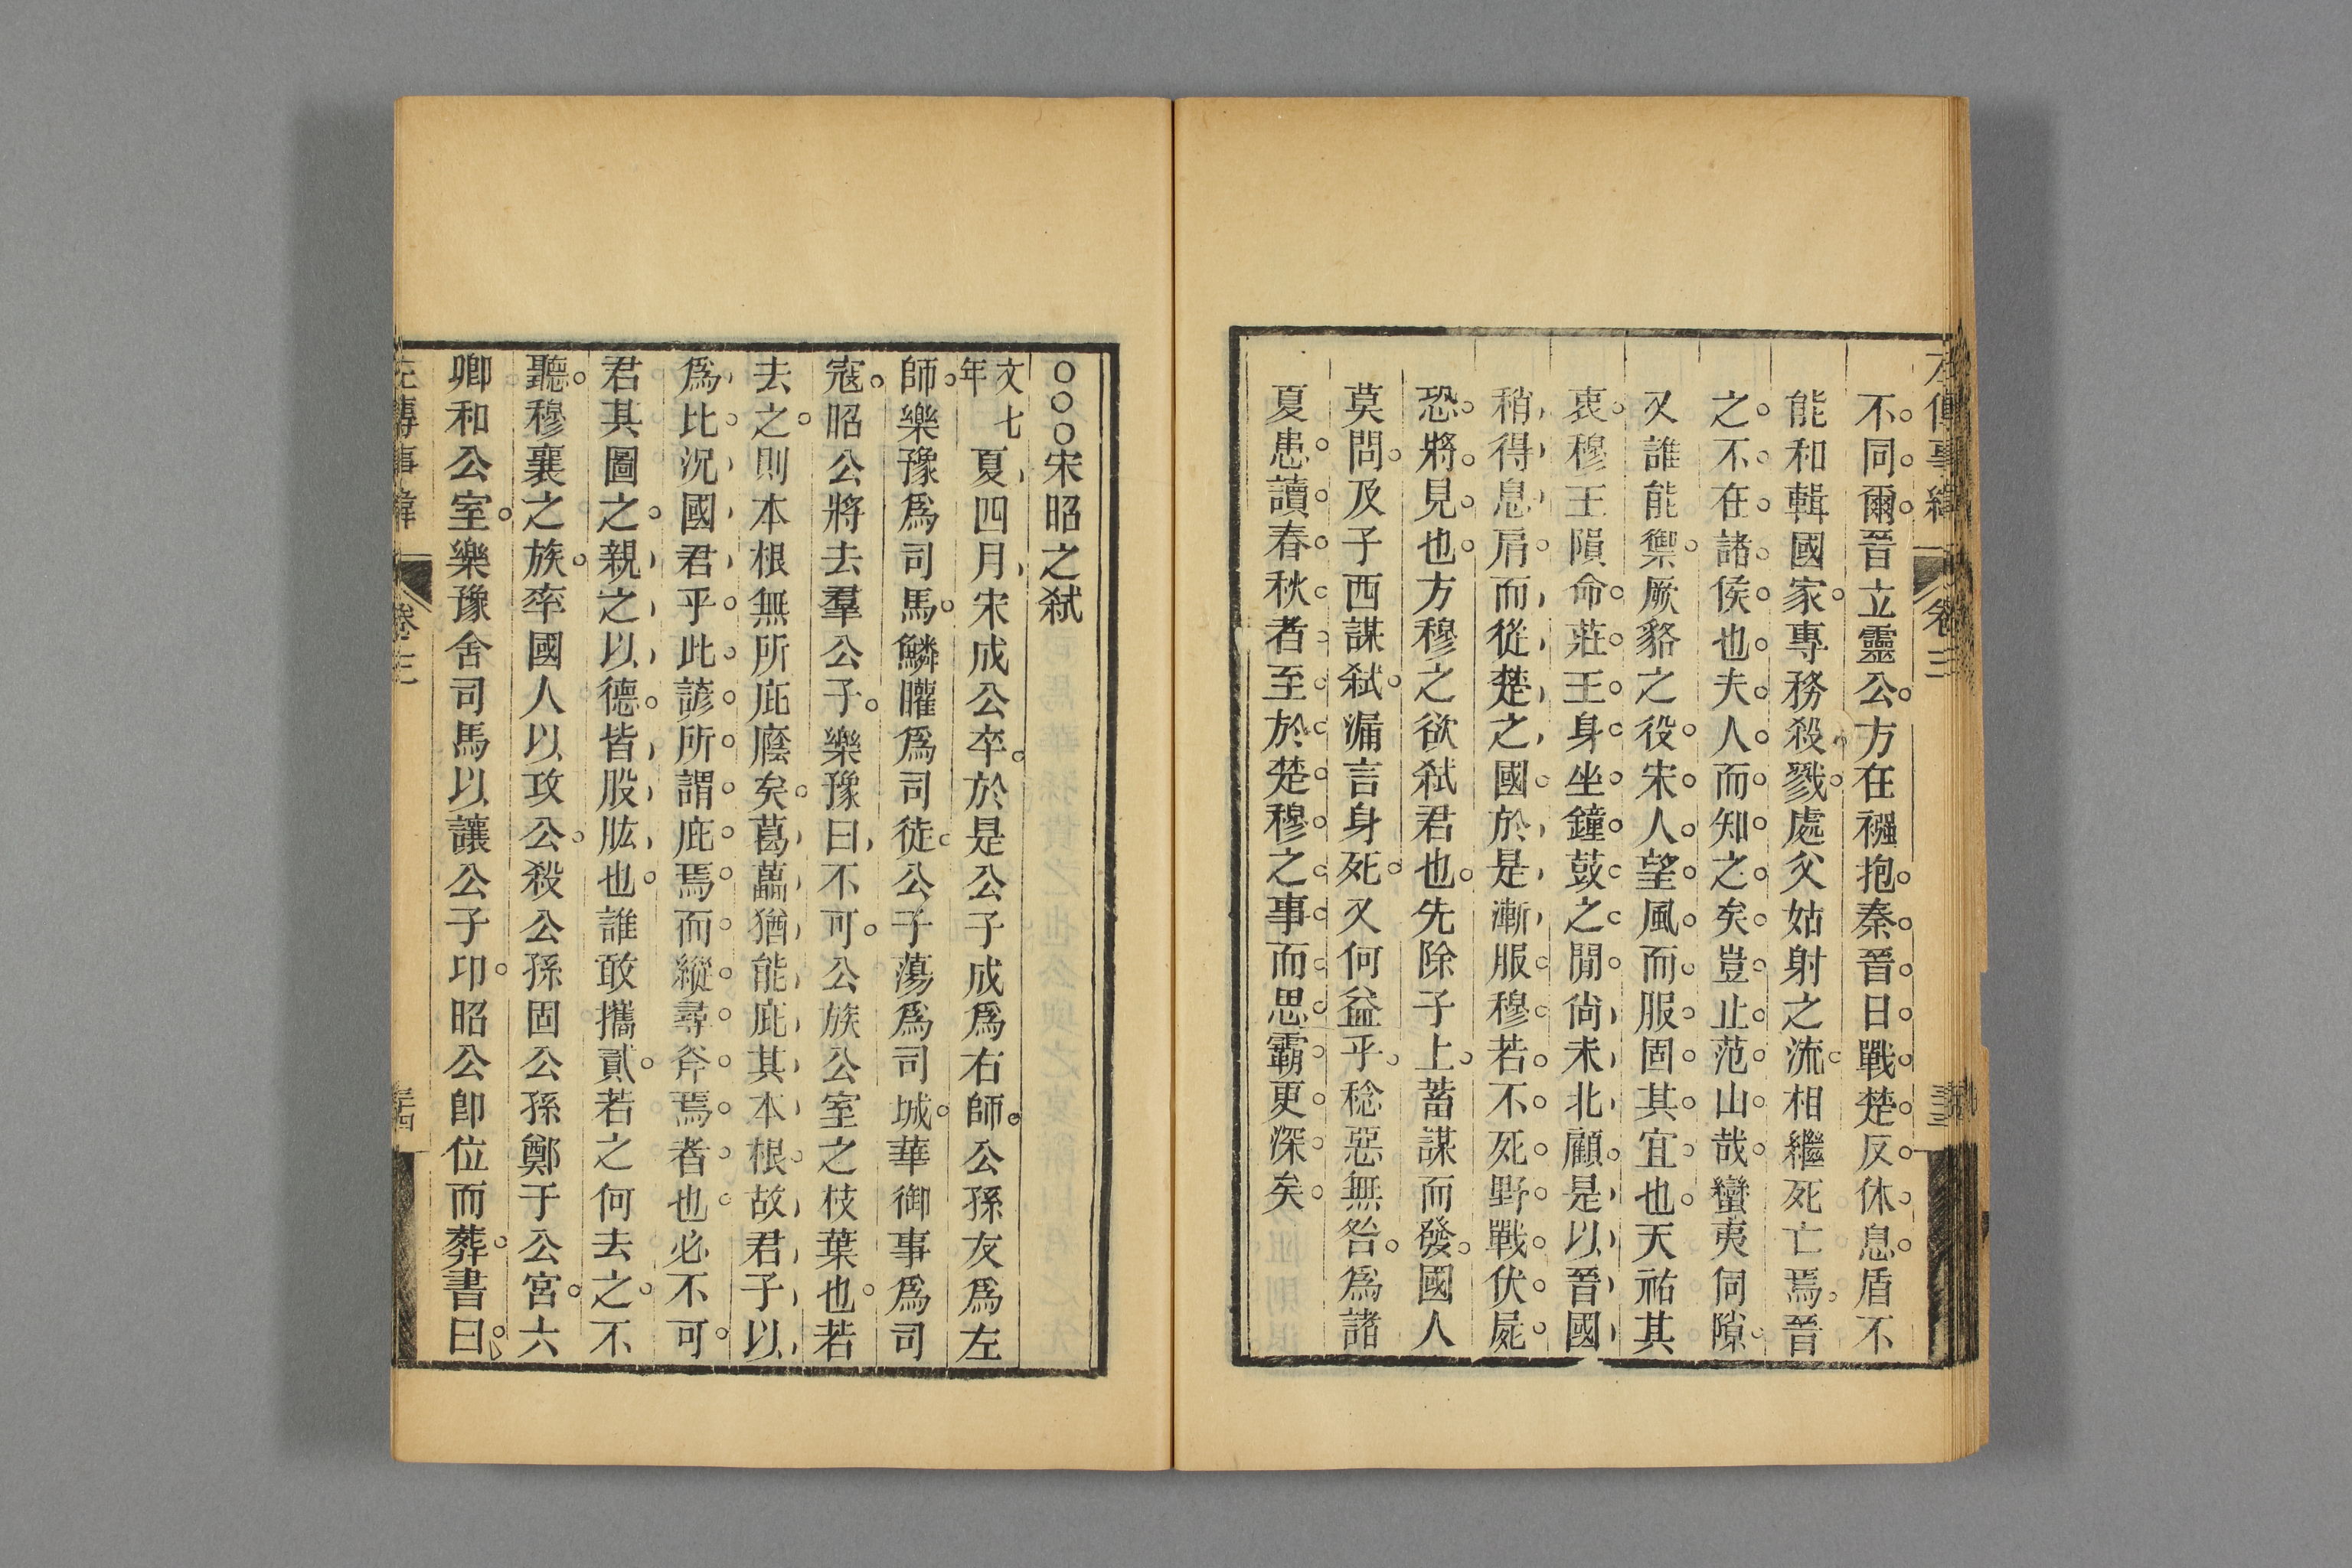 不同爾晉立靈公方在襁抱秦晉日戰楚反休息盾不
能和輯國家專務殺戮處父姑射之流相繼死亡焉晉
之不在諸侯也夫人而知之矣豈止范山哉蠻夷伺隙
又誰能禦厥貉之役宋人望風而服固其宜也天祐其
衷穆王隕命莊王身坐鐘鼓之閒尚未北顧是以晉國
稍得息肩而從楚之國於是漸服穆若不死野戰伏屍
恐將見也方穆之欲弒君也先除子上蓄謀而發國人
莫問及子西謀弒漏言身死又何益乎稔惡無咎爲諸
夏患讀春秋者至於楚穆之事而思霸更深矣
左傳事緯 卷三
○○○宋昭之弒
文七年 夏四月宋成公卒於是公子成爲右師公孫友爲左
師樂豫爲司馬鱗矔爲司徒公子蕩爲司城華御事爲司
寇昭公將去羣公子樂豫曰不可公族公室之枝葉也若
去之則本根無所庇廕矣葛藟猶能庇其本根故君子以
爲比況國君乎此諺所謂庇焉而縱尋斧焉者也必不可
君其圖之親之以德皆股肱也誰敢攜貳若之何去之不
聽穆襄之族率國人以攻公殺公孫固公孫鄭于公宮六
卿和公室樂豫舍司馬以讓公子卬昭公卽位而葬書曰
左傳事緯 卷三